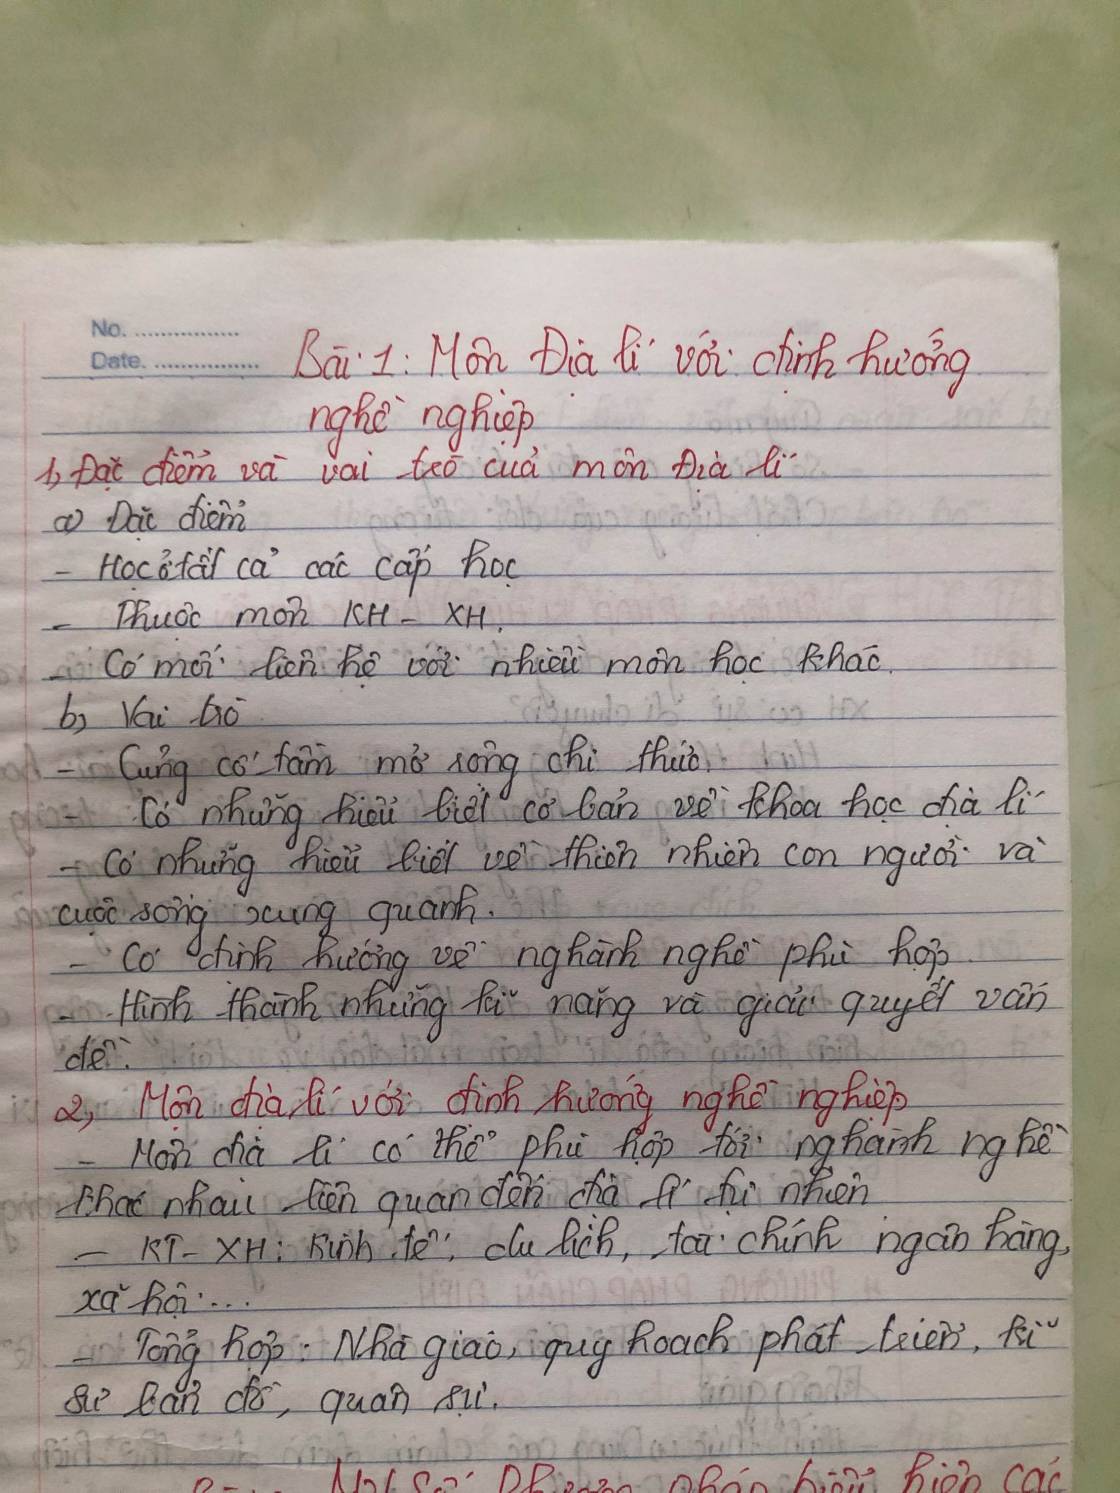 No. ................
Date. ................
Bài 1: Môn Địa lí với định hướng
nghề nghiệp
1, Đặc điểm và vai trò của môn Địa lí
a) Đặc điểm
- Học ở tất cả các cấp học
- Thuộc môn KH - XH.
- Có mối liên hệ với nhiều môn học khác.
b, Vai trò
- Cũng có tầm mở rộng chi thức.
- Có những hiểu biết cơ bản về khoa học địa lí
- Có những hiểu biết về thiên nhiên con người và
cuộc sống xung quanh.
- Có định hướng về nghành nghề phù hợp
- Hình thành những kĩ năng và giải quyết vấn
đề.
2, Môn địa lí với định hướng nghề nghiệp
- Môn địa lí có thể phù hợp tới nghành nghề
khác nhau liên quan đến địa lí tự nhiên
- KT - XH: Kinh tế, du lịch, tài chính ngân hàng,
xã hội...
- Tổng hợp: Nhà giáo, quy hoạch phát triển, kĩ
sư bản đồ, quân sự.
Một số phương pháp biểu hiện các